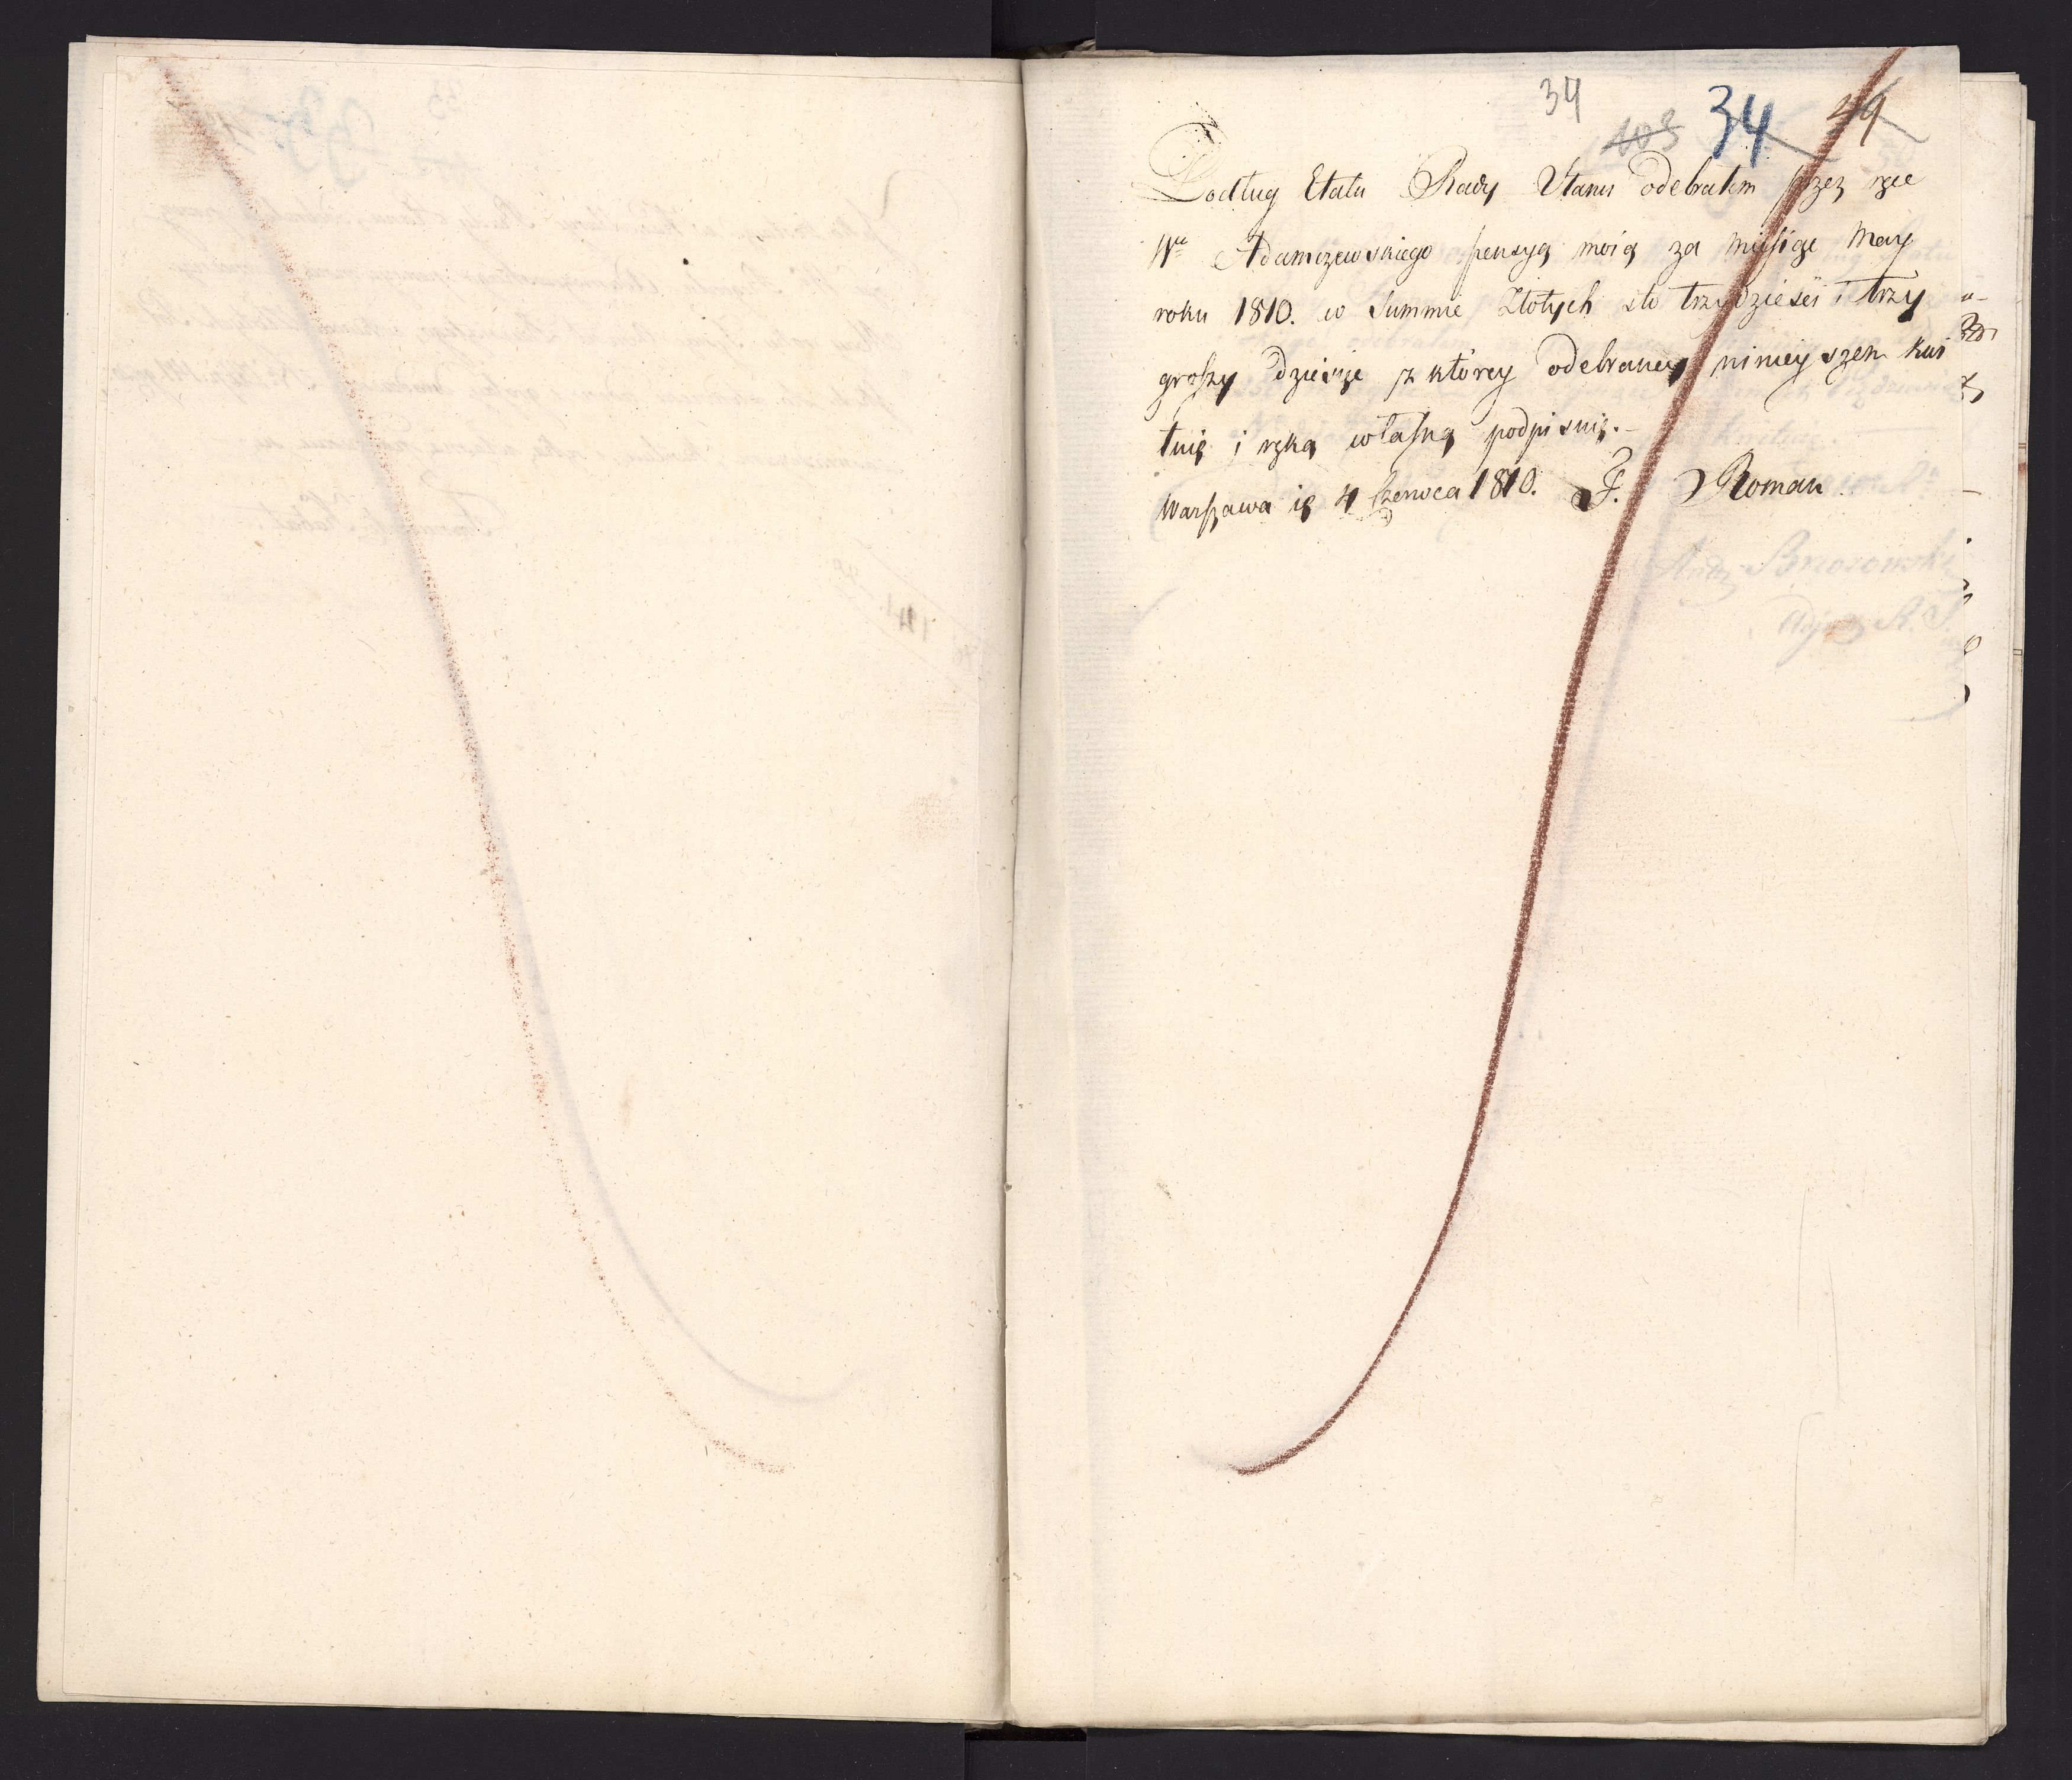 34
103 34 49
Podług Etatu Rady Stanu odebrałem przez ręce
Wo Adamczewskiego pensyą moią za miesiąc May
roku 1810. w Summie Złotych sto trzydzieści i trzy
groszy dziesięć z którey odebraney nineyszem kwi
tuię i ręką własną podpisuię.-
Warszawa d. 4 Czerwca 1810. J. Roman